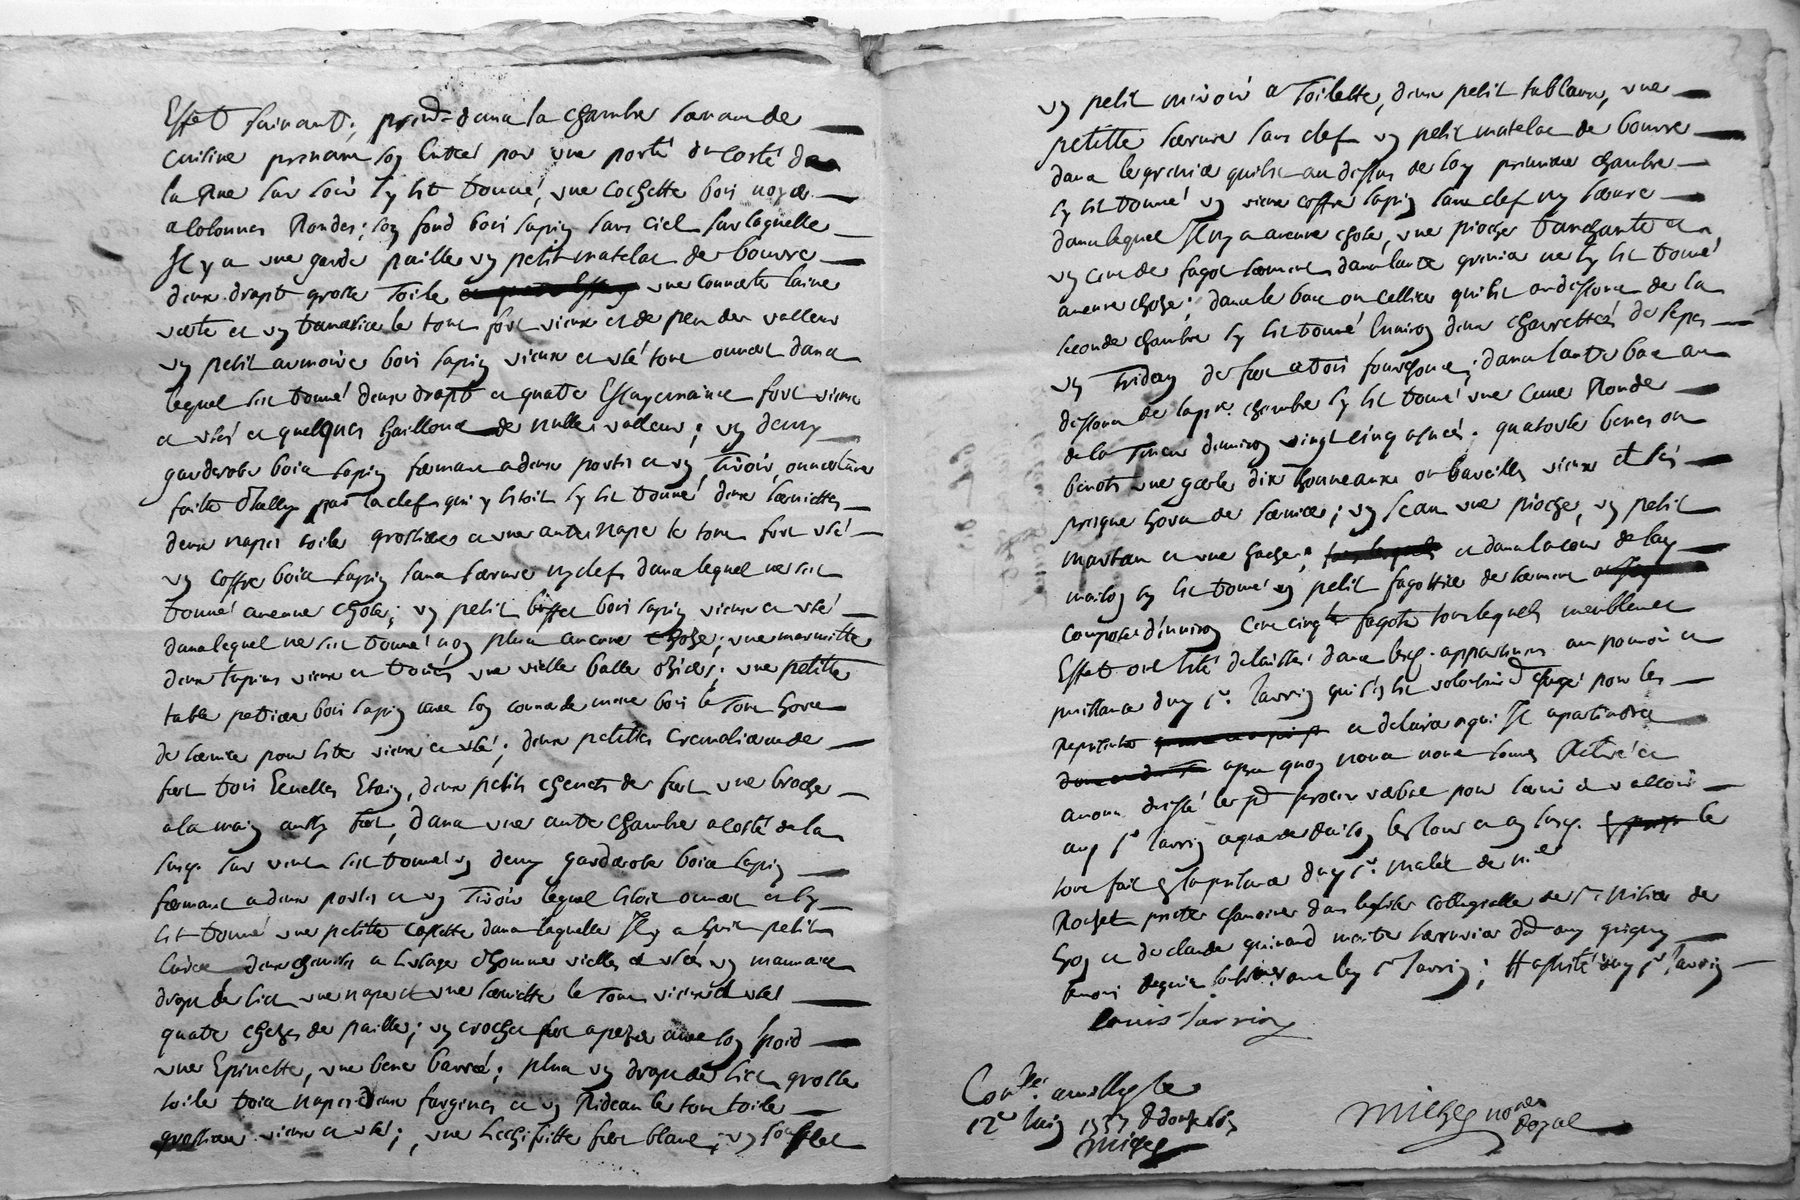 Effet suivant; prem.t dans la chambre servant de
cuisine prenant son Entrée par une porté du costé de
la Rue sur soir sy est trouvé, une cochette bois noyer
a colonnes Rondes; son fond bois sapin sans ciel sur laquelle
Il y a une garde paille un petit matelat de bourre
deux drapt grosse Toile une couverte laine
verte et un traversier le tout fort vieux et de peu de valleur
un petit armoire bois sapin vieux et usé tout ouvert dans
lequel sest trouvé deux drapt et quatre Essuyemains fort vieux
et usés et quelques haillions de nulle valleur; un demy
garderobe bois sapin fermant a deux portes et un Tiroir, ouverture
faitte dIcelluy par la clef qui y estoit sy est trouvé deux serviettes
deux napes toile grossiere et une autre Nape le tout fort usé
un coffre bois sapin sans serrure ny clef dans lequel ne sest
trouvé aucune chose; un petit buffet bois sapin vieux et usé
dans lequel ne sest trouvé non plus aucune chose; une marmitte
deux tupins vieux et troués une vielle balle osiers; une petitte
table petriere bois sapin avec son couvercle meme bois le Tout hors
de service pour estre vieux et usé; deux petittes cremalieres de
fert trois Ecuelles Etain, deux petits chenets de fert une broche
a la main aussy fert, dans une autre chambre a costé de la
susd. sur vent sest trouvé un demy garderobe bois sapin
fermant a deux portes et un Tiroir lequel estoit ouvert et sy
est trouvé une petitte cassette dans laquelle Il y a huit petits
deux chemises a lusage dhomme vielles et usées un mauvais
drapt de lict une nape et une serviette le Tout vieux et usé
quatre cheses de paille; un crochet fert a pezer avec son poid
une Epinette, une bene barrée; plus un drapt de lict grosse
toile trois napes deux et un Rideau le tout toile
grossiere vieux et usé; une Lechifritte fert blanc; un soufflet
un petit miroir a Toilette, deux petit tableaux, une
petitte serrure sans clef un petit matelat de bourre
dans le grenier quiest au dessus de la premiere chambre
sy est trouvé un vieux coffre sapin sans clef ny serrure
dans lequel Il ny a aucune chose, une pioche tranchante et
un cent de fagot serment, dans lautre grenier ne sy est trouvé
aucune chose; dans le bas ou cellier quiest au dessous de la
seconde chambre sy est trouvé Environ deux charrettées de
un Triden de fert et trois; dans lautre bas au
dessous de la p.re chambre sy est trouvé une cuve Ronde
de la Teneur denviron vingt cinq asnées; quatorze benes ou
benots une gerle dix tonneaux ou barailles vieux et usés
presque hors de service; un seau une pioche, un petit
marteau et une hache; et dans la cour de lad.
maison sy est trouvé un petit fagottier de serment
composé denviron cent cinq.te fagots tous lequels meubles et
Effet ont esté delaissés dans lesd. appartemens au pouvoir et
puissance dud. s.r Jarrin qui sen est volontaire.t chargé pour les
Representer et delivrer a qui Il apartiendra
apres quoy nous nous sommes Retiré et
avons dressé le p.nt proces verbal pour servir et valloir
aud. s.r Jarrin a que de raison les jour et an susd. le
tout fait En la presence dud. s.r de m.re
Rochet pretre chanoine dans leglise collegialle de s.t Nizier de
Lyon et de claude guinand maitre serrurier dud.
temoins Requis soubsignés avec led. s.r Jarrin; Jarrin
Louis Jarrin
Con.lé a milly le
12e Juin 1757 R douze sols
Michey
Michey no.re Royal